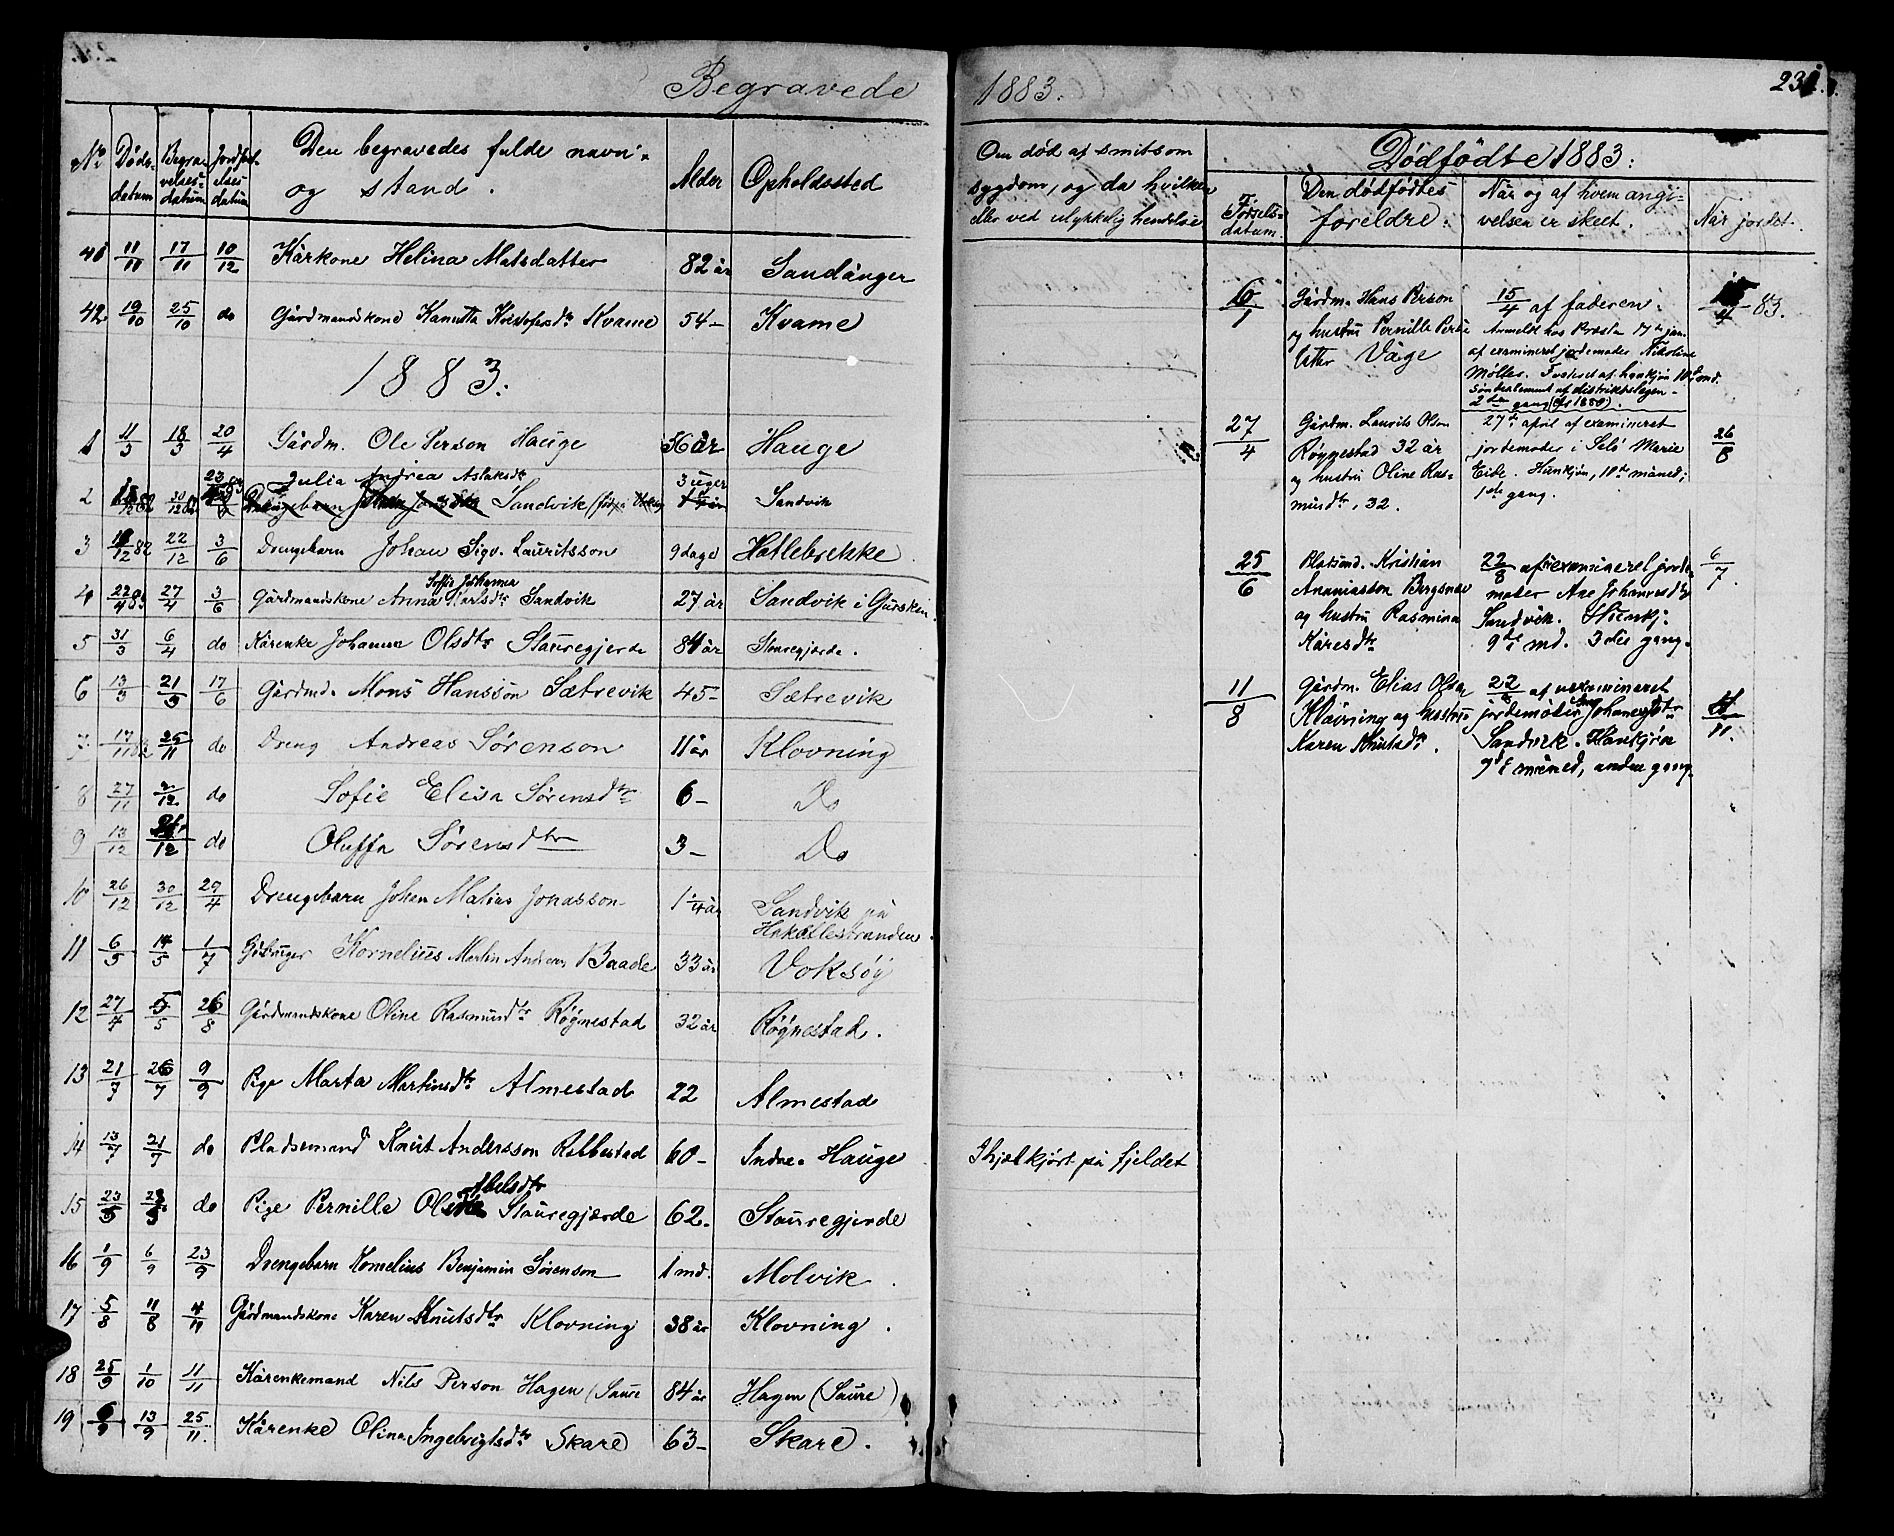 Begravede 1883. 231.
No Døds-datum Begravelses-datum Jordfæstelses datum Den begravedes fulde navn og stand. Alder Opholdssted Om død af smitsom sygdom, og da hvilken eller ved ulykkelig hendelse
41 11/11 17/11 10/12 Kårkone Helina Matsdatter 82 år Sandånger
42 19/10 25/10 do Gårdmandskone Kanutta Kristofersdtr Kvame 54 - Kvame
1883.
1 11/3 18/3 20/4 Gårdm. Ole Person Hauge 36 år Hauge
Julia Andrea Aslaksdtr 3 uger
2 30/12 82 Sandvik Sandvik
3 12 82 22/12 3/6 Drengebarn Johan Sigv. Lauritsson 9 dage Hatlebrekke
Sofie Johanna
4 22/4 83 27/4 3/6 Gårdmandskone Anna Karlsdtr Sandvik 27 år Sandvik i Gursken
5 31/3 6/4 do Kårenke Johanne Olsdtr Stauregjerde 84 år Stauregjerde.
6 13/3 21/3 17/6 Gårdmd. Mons Hansson Sætrevik 45 - Sætrevik
7 17/11 82 25/11 do Dreng Andreas Sørenson 11 år Klovning
8 27/11 2/12 do Sofie Elisa Sørensdtr 6 - Do
9 13/12 /12 do Oluffa Sørensdtr 3 - Do
10 26/12 30/12 29/4 Drengebarn Johan Matias Jonasson 1 1/4 år Sandvik på
Hakallestranden.
11 6/5 14/5 1/7 Gårdbruger Kornelius Martin Andreas Baade 33 år Voksøy
12 27/4 5/5 26/8 Gårdmandskone Oline Rasmundsdtr Røgnestad 32 år Røgnestad.
13 21/7 26/7 9/9 Pige Marta Martinsdtr Almestad 22 Almestad
14 13/7 21/7 do Pladsemand Knut Andersson Rabbestad 60 - Indre Hauge Ihjælkjørt på fjeldet
Abelsdtr
15 23/3 28/3 do Pige Pernille Stauregjærde 62. Stauregjerde
16 1/9 6/9 23/9 Drengebarn Kornelius Benjamin Sørenson 1 md. Molvik.
17 5/8 11/8 4/11 Gårdmandskone Karen Knutsdtr Klovning 38 år Klovning.
18 25/9 1/10 11/11 Kårenkemand Nils Person Hagen (Saure 84 år Hagen (Saure)
19 6/9 13/9 25/11. Kårenke Olina Ingebrigtsdtr Skare 63 - Skare.
Dødfødte 1883:
Fødsels-datum Den dødfødtes foreldre. Når og af hvem angivelsen er skeet. Når jordet.
6/1 Gårdm. Hans Person 15/4 af faderen. /4 83.
og hustru Pernille Pers- Anmeldt hos Præsten 17de jan.
datter Våge af examineret jordemoder Nikoline
Møller. Fosteret af hankjøn 10de md.
Sønderlemmet af distriktslægen -
2den gang (1880).
27/4 Gårdm. Laurits Olson 27de april af examineret 26/8
Røgnestad 32 år jordemoder i Selø Marie
og hustru Oline Ras- Eide. Hunkjøn, 10de måned;
mundsdtr, 32. 1ste gang.
25/6 Pladsmd. Kristian 22/8 af uexamineret jorde- 6/7.
Ananiasson Bergsnes moder Ane Johannesdtr
og hustru Rasmina Sandvik. Hunkj.
Kåresdtr 9de md. 3die gang.
11/8 Gårdm. Elias Olson 22/8 af uexamineret 4/11.
Klovning og hustru jordemoder Ane Johannesdtr
Karen Knutsdtr. Sandvik. Hankjøn
9de måned, anden gang.